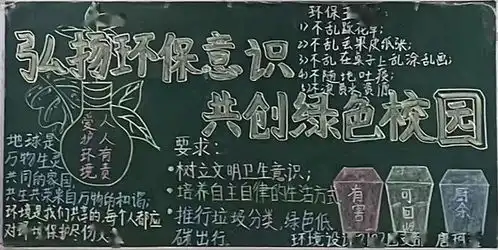 弘扬环保意识
共创绿色校园
环保
1)不乱踩花草;
2)不乱丢果皮纸张;
3)不乱在桌子上乱涂乱画;
4)不随地吐痰;
5)不浪费水资源
爱护环境
人人有责
地球是
万物生
共同的家园,
共生共荣来自万物的和谐;
环境是我们共享的,每个人都应
对环境保护尽份
要求:
·树立文明卫生意识;
·培养自主自律的生活方式
·推行垃圾分类,绿色低
碳出行.
有害
可回收
厨余
环境设计
唐